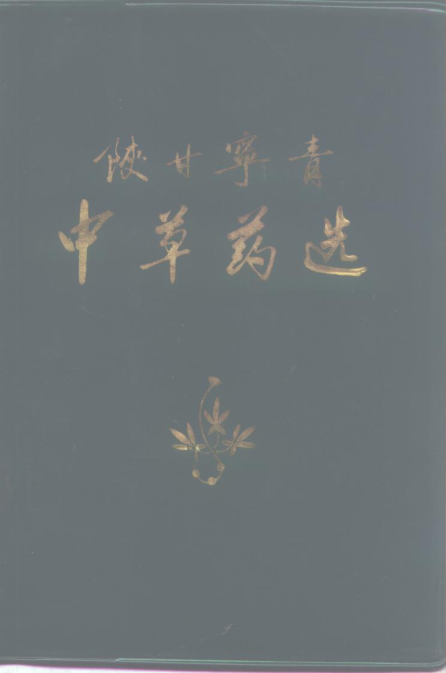 陕甘寧青
中草药选